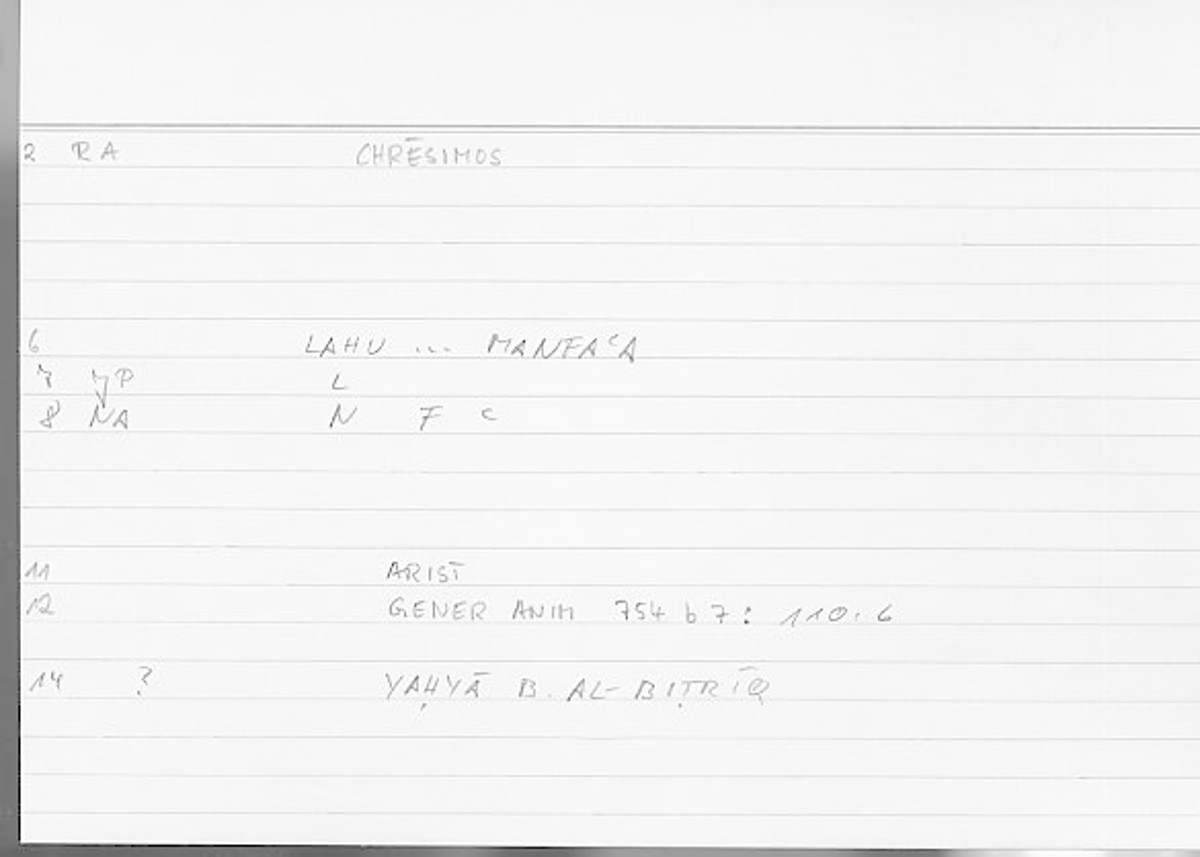 2 RA CHRĒSIMOS
6 LAHU ... MANFAʿA
7 P L
8 NA N F ʿ
11 ARIST
12 GENER ANIM 754 b 7: 110.6
14 ? YAḤYĀ B. AL-BIṬRĪQ